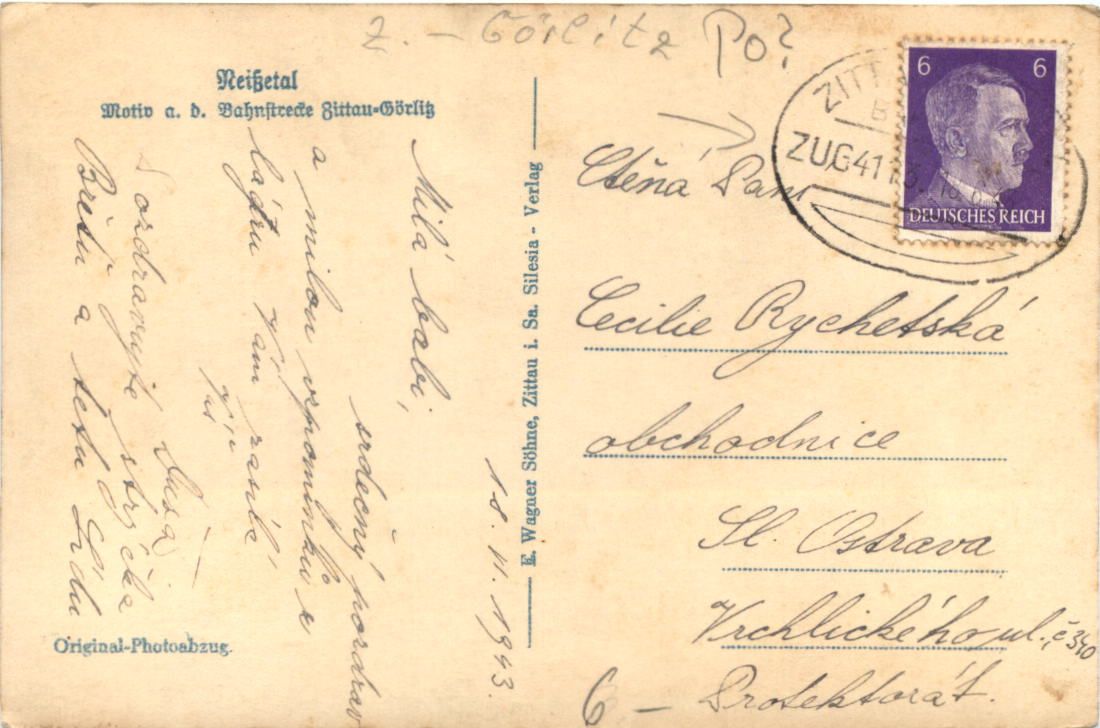 Z. - Görlitz Po?
Neißetal
Motiv a. d. Bahnstrecke Zittau-Görlitz
Milá babi,
srdečný pozdrav
a milou vzpomínku z
lágru Vám zasílá
Váš
Lusa
Pozdravujte strýčka
Břéťu a tetu Lídu
18. 11. 1943.
Original-Photoabzug.
E. Wagner Söhne, Zittau i. Sa. Silesia - Verlag
6 6
DEUTSCHES REICH
ZITT
ZUG 41
Ctěná Paní
Cecilie Rychetská
obchodnice
Sl. Ostrava
Vrchlického ul., č 340
Protektorát.
6 -